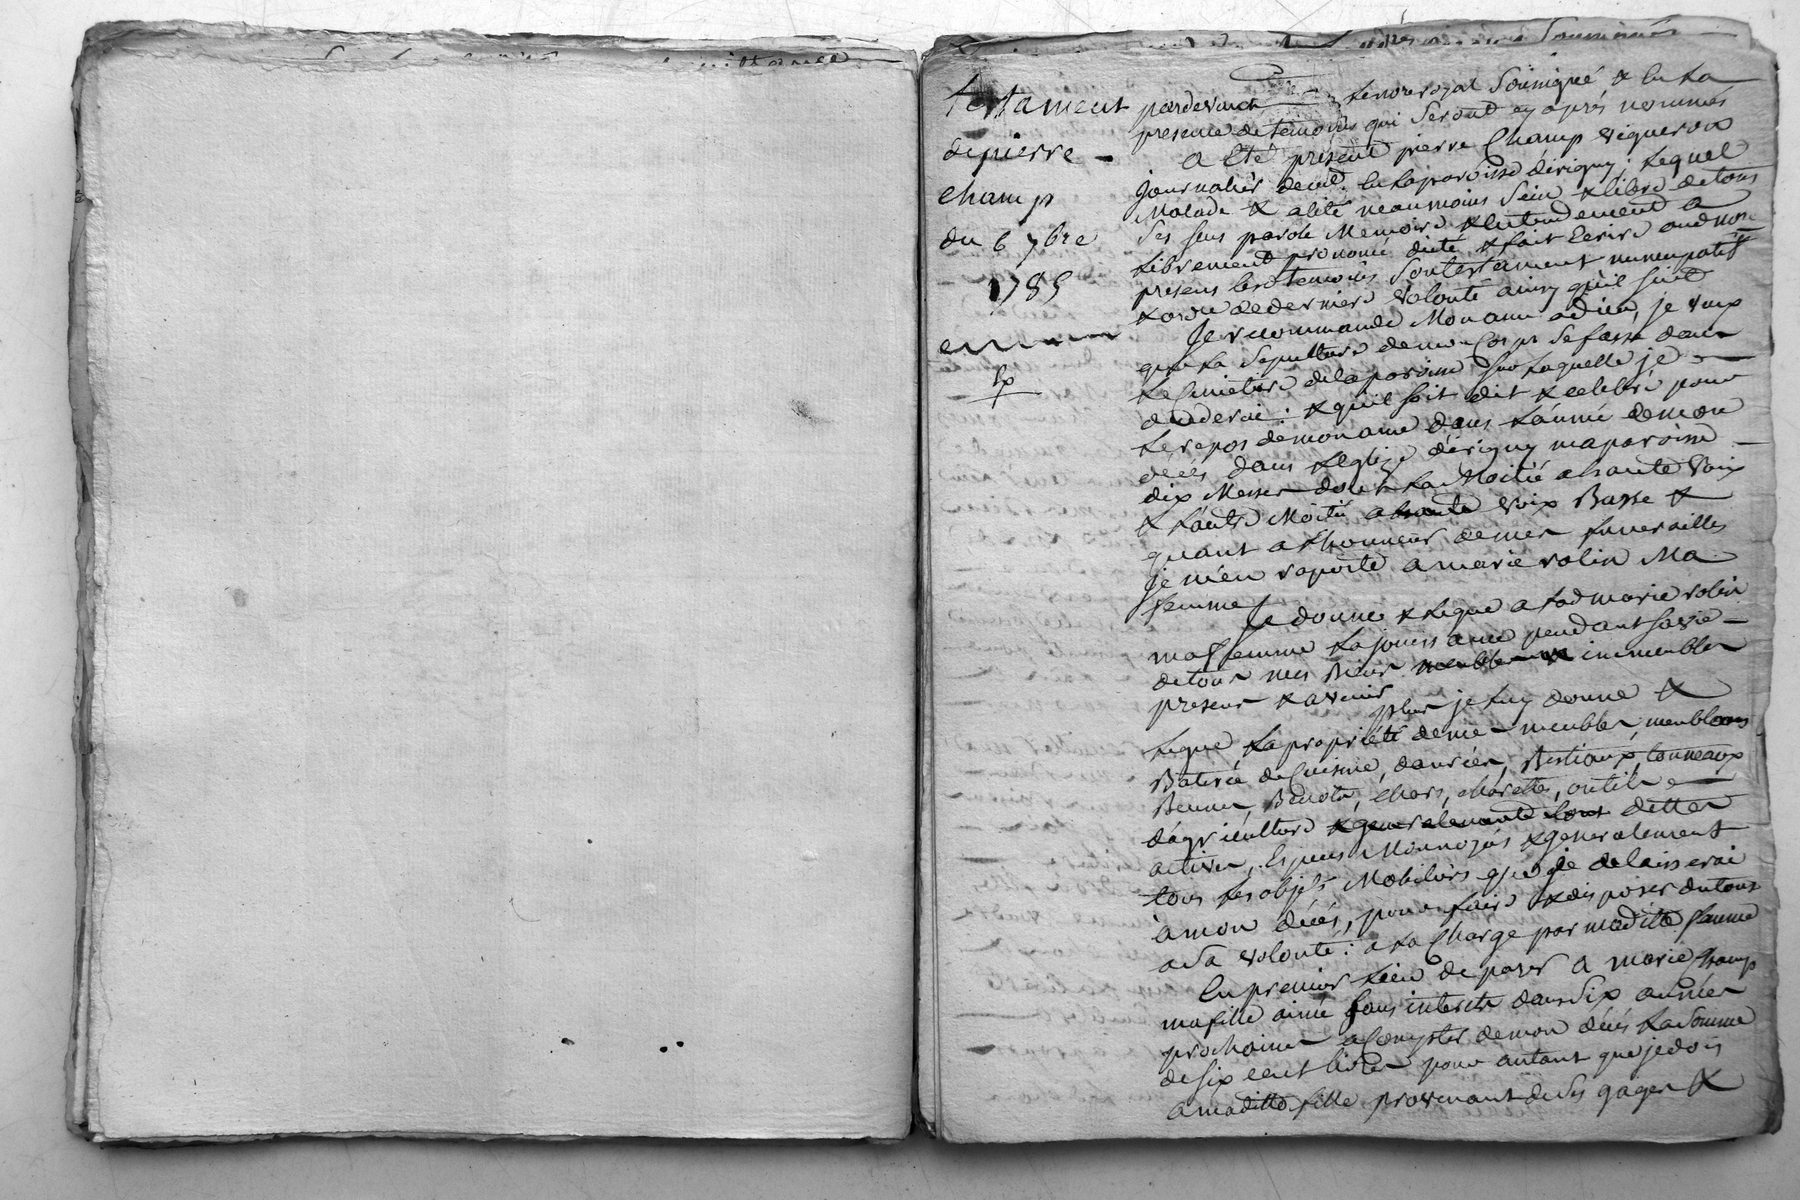 testament
de pierre
champ
du 6 7bre
1785
pardevant le no.re royal Soussigné & en la
presence de témoins qui Seront cy après nommés
a été présent pierre Champ vigneron
journalier dem.t en la paroisse dérigny: Lequel
Malade & alité neanmoins Sein & libre de tous
Ses sens parole Memoire & entendement a
Librement prononcé dicté & fait Ecrire aud no.re
présens les d. temoins Son testament nuncupatif
& ordre de derniere volonté ainsy qu'il Suit
Je recommande Mon ame a dieu, je veux
que La Sepulture de mon Corps Se fasse dans
Le Cimetiere de la paroisse Sur Laquelle je
décéderai: & qu'il soit dit & celebré pour
Le repos de mon ame dans L'année de mon
décés dans L'eglize d'érigny ma paroisse
dix Messes dont La Moitié a haute Voix
& L'autre Moitié a voix Basse &
quant a L'honneur de mes funerailles
Je m'en raporte a marie rolin Ma
femme
Je donne & Legue a Lad marie rolin
ma femme La jouissance pendant Sa vie
de tous mes Biens immeubles
presens & avenir
plus je Luy donne &
Legue La propriété de mes meubles, meublans
Baterie de Cuisine, danrées, Bestiaux, tonneaux
Bennes, chars, charettes, outils
d'agriculture & generalement dettes
actives, Especes Monnoyés & generalement
tous Les objets Mobiliers que je delaisserai
à mon décés, pour faire & disposer du tout
a Sa volonté: a La Charge par madite femme
En premier Lieu de payer a marie Champ
ma fille ainée Sans interets dans Six années
prochaines a Compter de mon décés La Somme
de Six cent livres pour autant que je dois
a madite fille provenant de Ses gages &